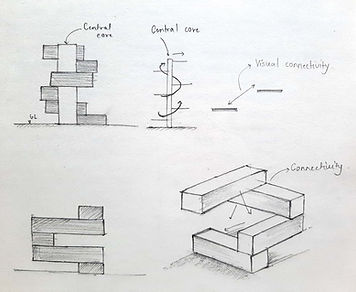 Central
core
Central core
Visual connectivity
GL
Connectivity